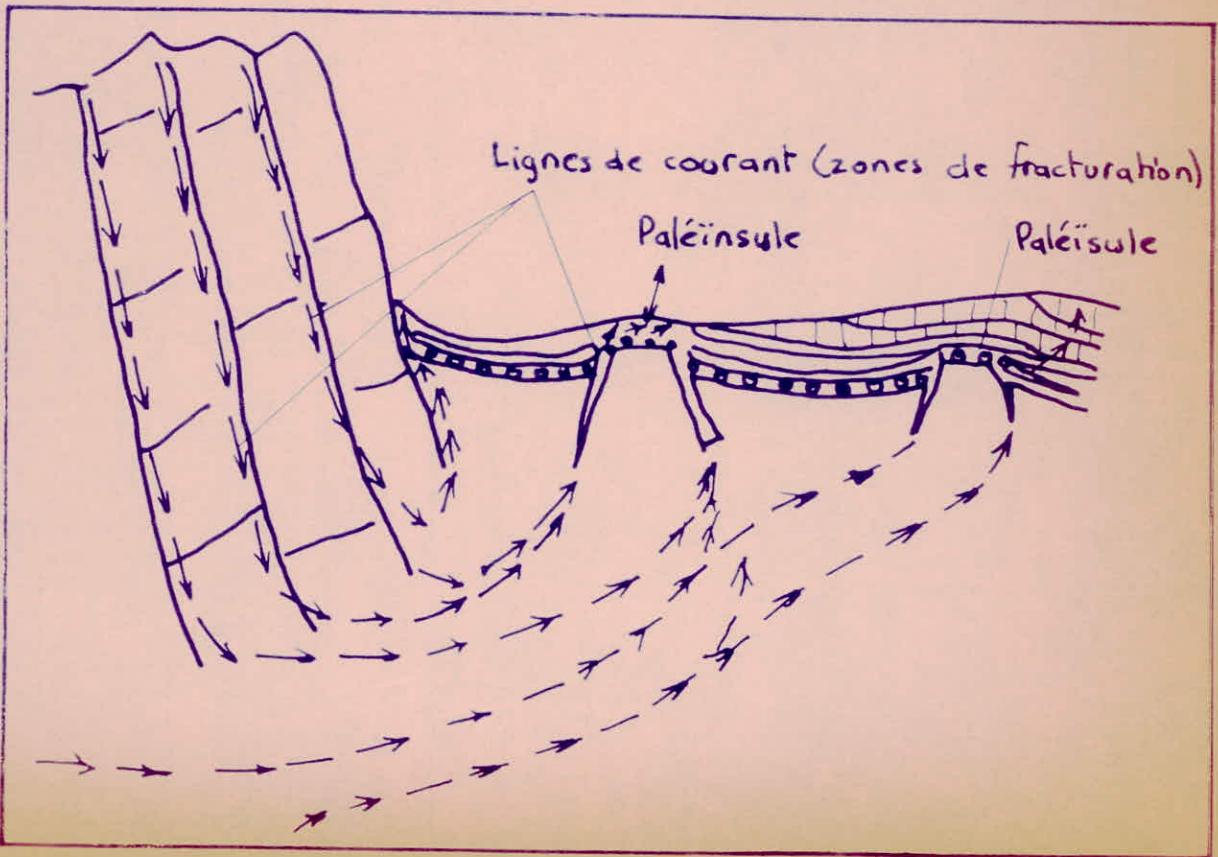 Lignes de courant (zones de fracturation)
Paléïnsule
Paléïsule